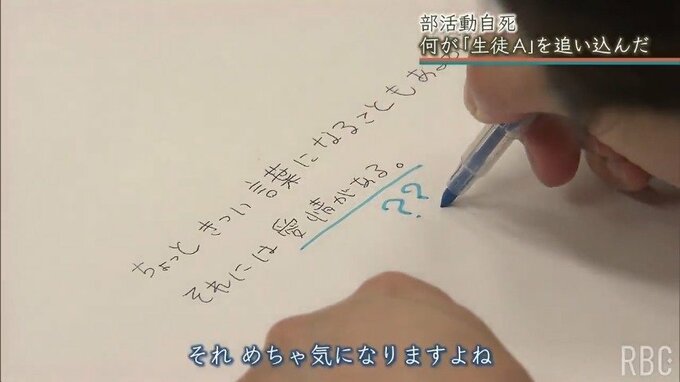 部活動自死
何が「生徒A」を追い込んだ
ちょっときつい言葉になることもある
それには愛情がある。
??
それ めちゃ気になりますよね
RBC